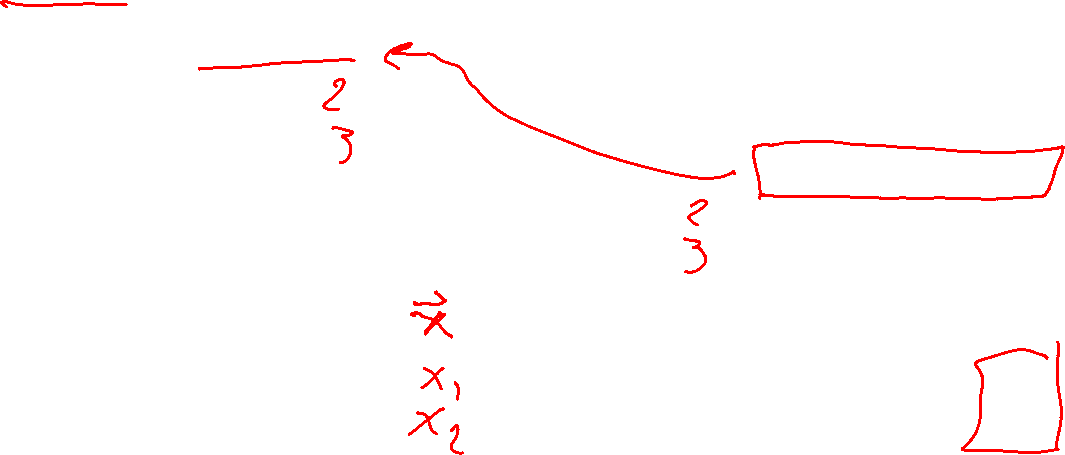 2
3
2
3
x⃗
x₁
x₂